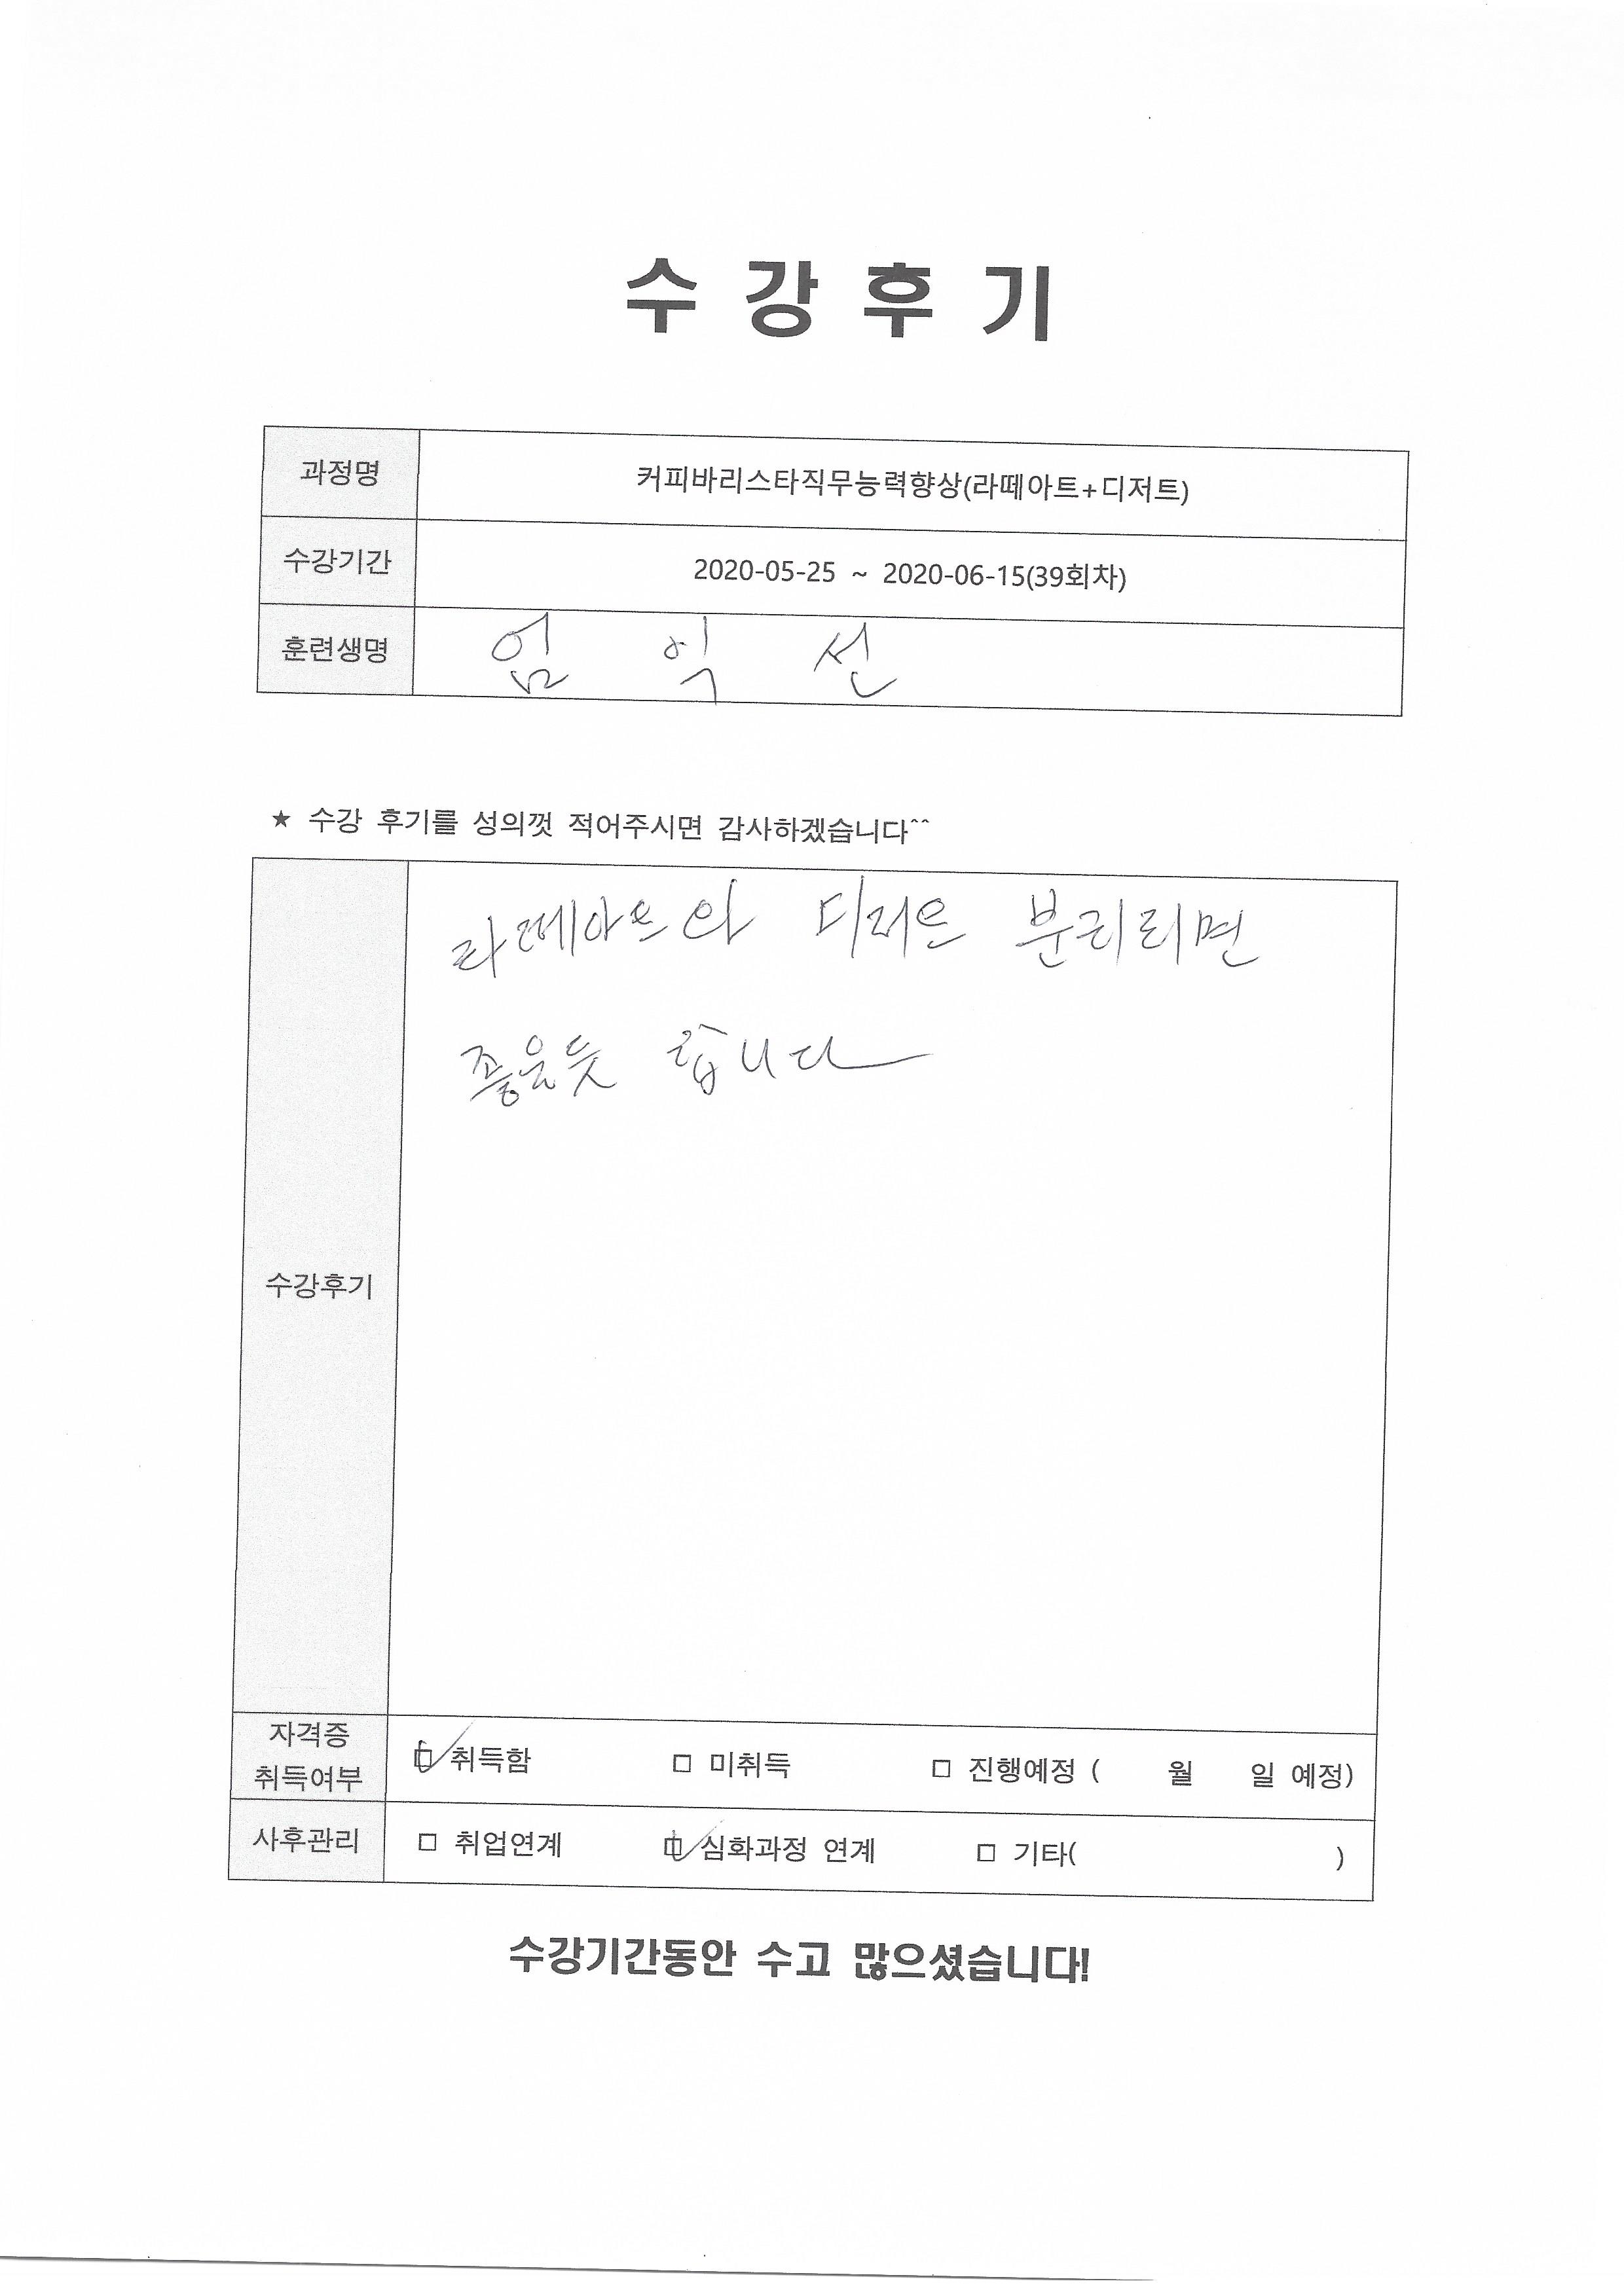 수 강 후 기
과정명 커피바리스타직무능력향상(라떼아트+디저트)
수강기간 2020-05-25 ~ 2020-06-15(39회차)
훈련생명 엄 익 선
★ 수강 후기를 성의껏 적어주시면 감사하겠습니다^^
라떼아트와 디저트 분리되면
좋을듯 합니다
수강후기
자격증
취득여부 □ 취득함 □ 미취득 □ 진행예정 ( 월 일 예정)
사후관리 □ 취업연계 □ 심화과정 연계 □ 기타( )
수강기간동안 수고 많으셨습니다!